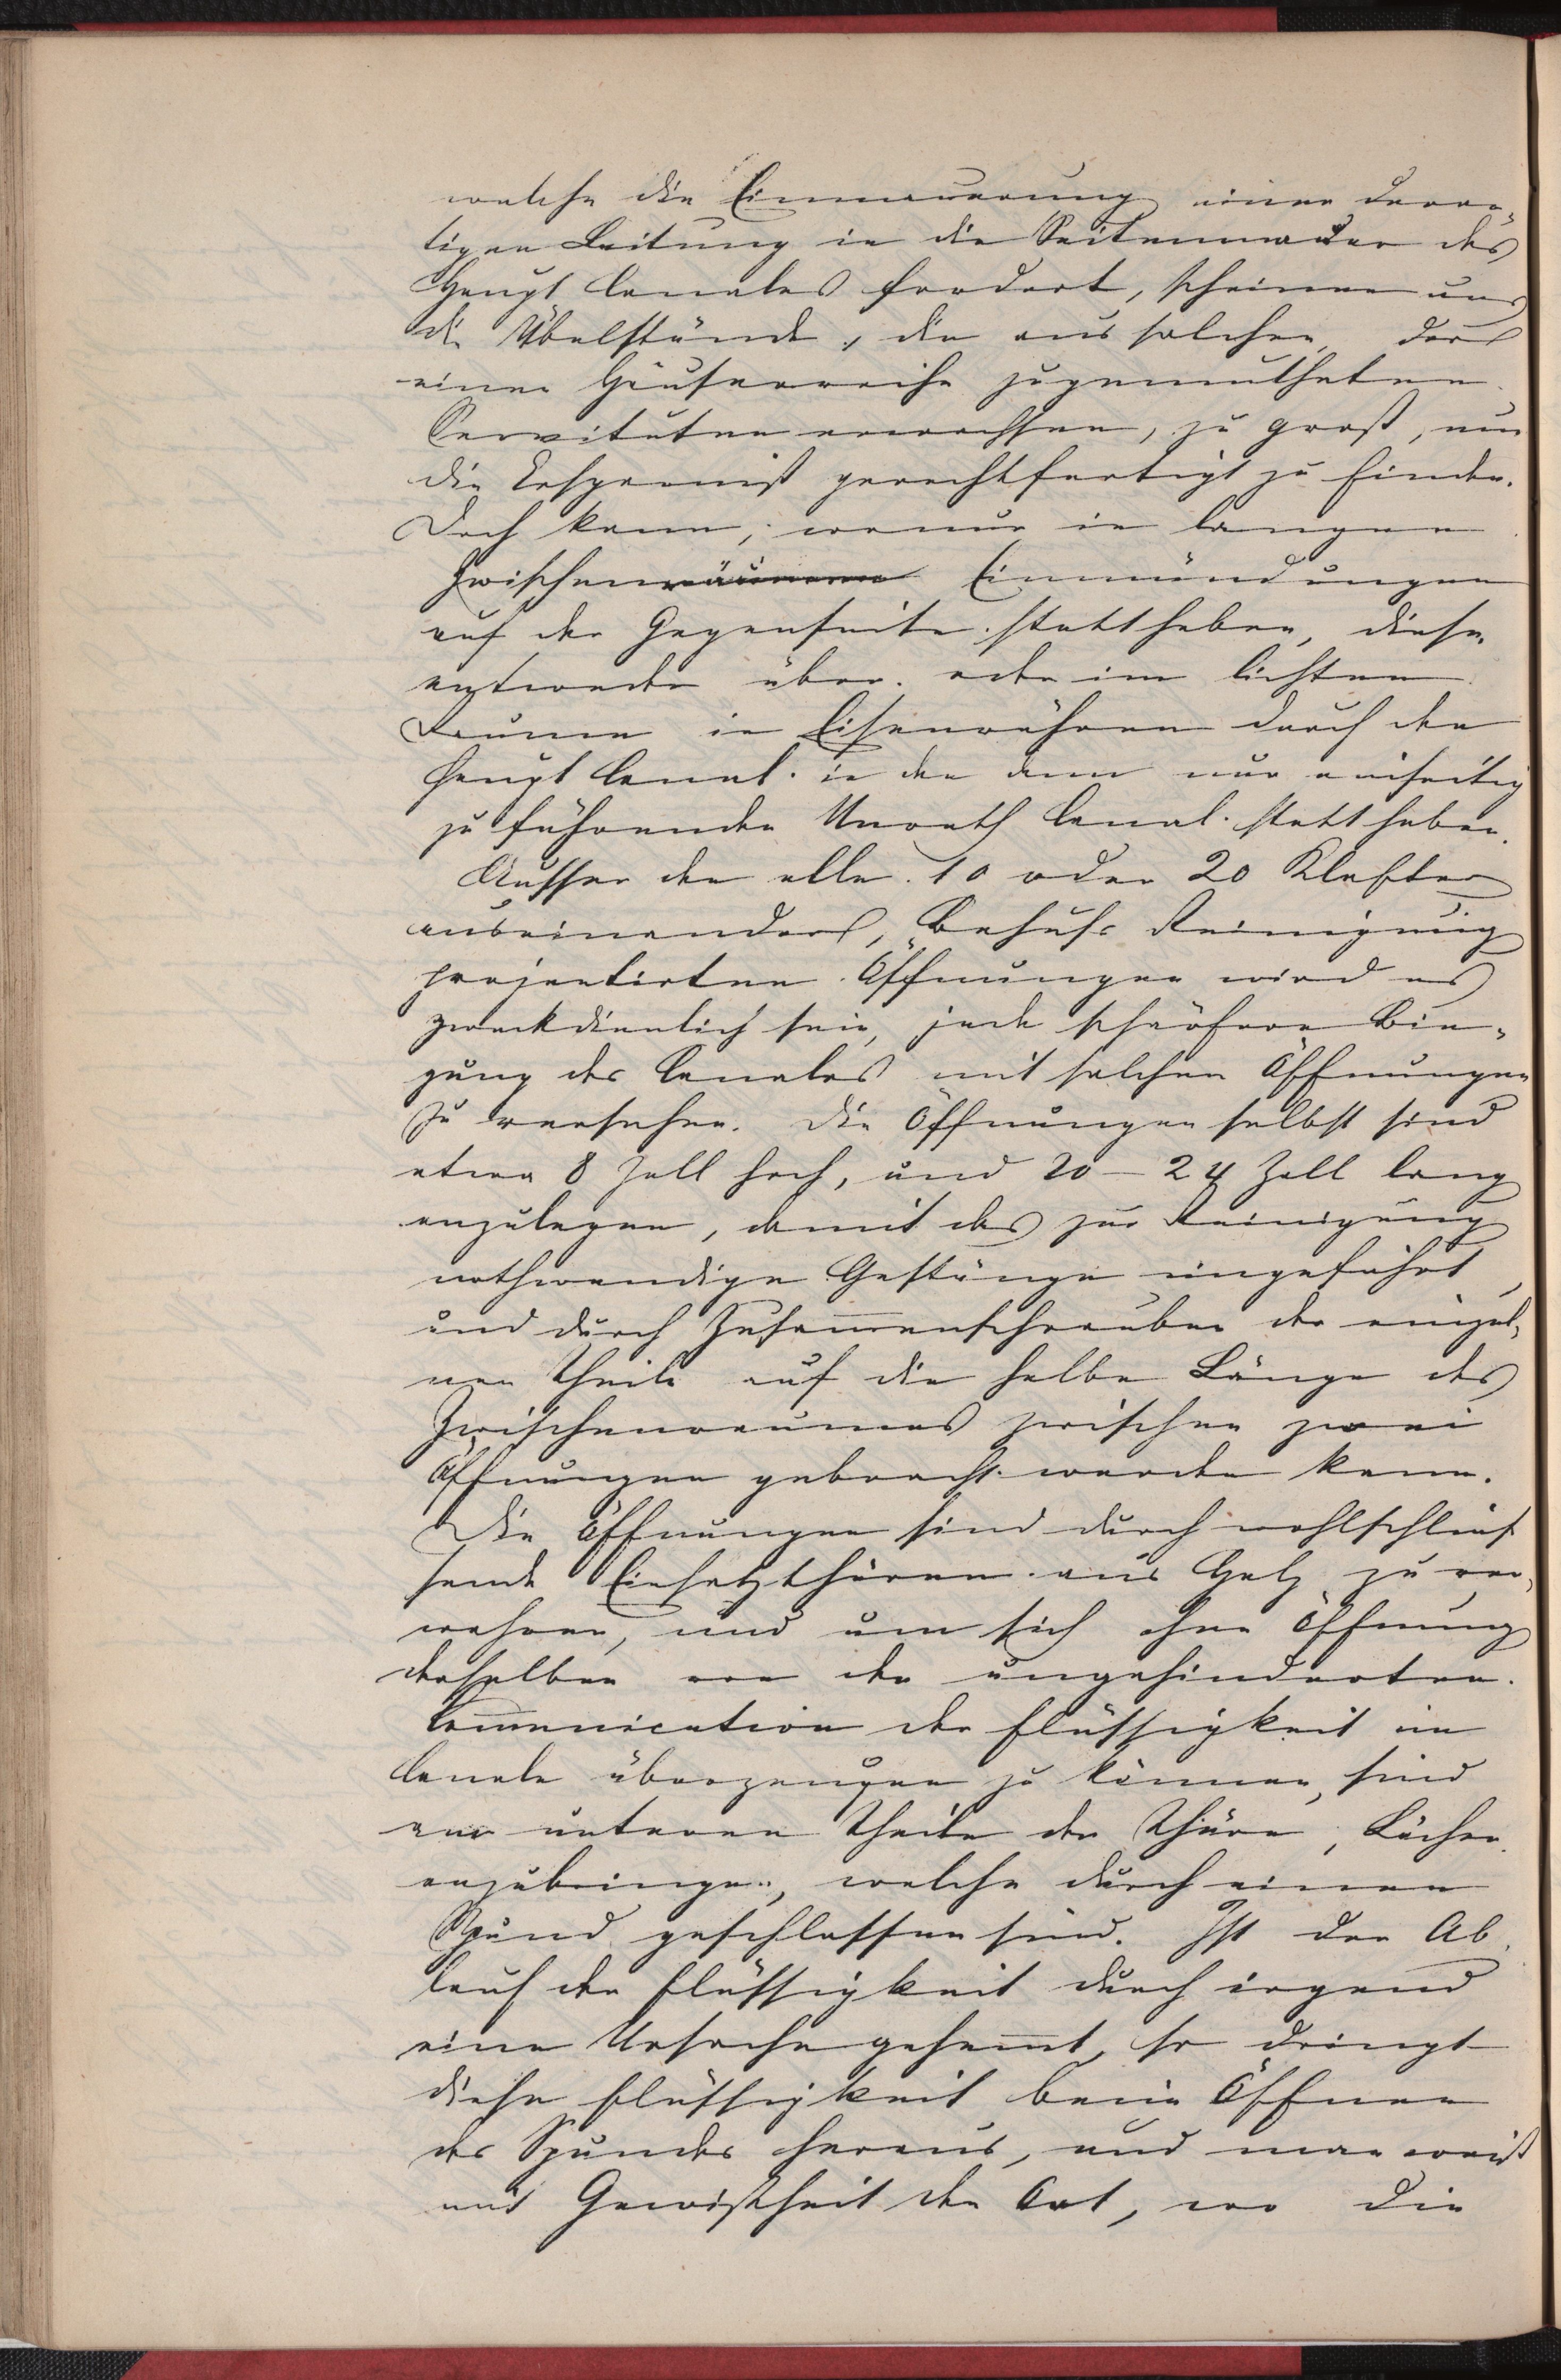 welche die Einmauerung einer derar-
tigen Leitung in die Seitenmauer des
Haupt Canales fordert, scheinen uns
die Übelstände, die aus solchen, der
einen Häuserreihe zugemutheten
Servituten erwachsen, zu groß, um
die Ersparniß gerechtfertigt zu finden.
Doch kann, wo nur in langen
Zwischenräumen Einmündungen
auf der Gegenseite statthaben, diese
entweder über- oder im lichten
Raume in Eisenröhren durch den
Haupt Canal in den dann nur einseitig
zu führenden Unrath Canal statthaben.
Ausser den alle 10 oder 20 Klafter
auseinander, Behufs Reinigung
projectirten Öffnungen wird es
zweckdienlich sein, jede schärfere Bie-
gung des Canales mit solchen Öffnungen
zu versehen. Die Öffnungen selbst sind
etwa 8 Zoll hoch, und 20 – 24 Zoll lang
anzulegen, damit das zur Reinigung
nothwendige Gestänge eingeführt,
und durch Zusam̅enschrauben der einzel-
nen Theile auf die halbe Länge des
Zwischenraumes zwischen zwei
Öffnungen gebracht werden kann.
Die Öffnungen sind durch wohlschließ
sende Einsatzthüren aus Holz zu ver-
wahren, und um sich ohne Öffnung
derselben von der ungehinderten
Com̅unication der Flüssigkeit im
Canale überzeugen zu können, sind
am unteren Theile der Thüre, Löcher
anzubringen, welche durch einen
Spund geschlossen sind. Ist der Ab
lauf der Flüssigkeit durch irgend
eine Ursache gehem̅t, so dringt
diese Flüssigkeit beim Öffnen
des Spundes heraus, und man weiß
mit Gewißheit den Ort, wo die